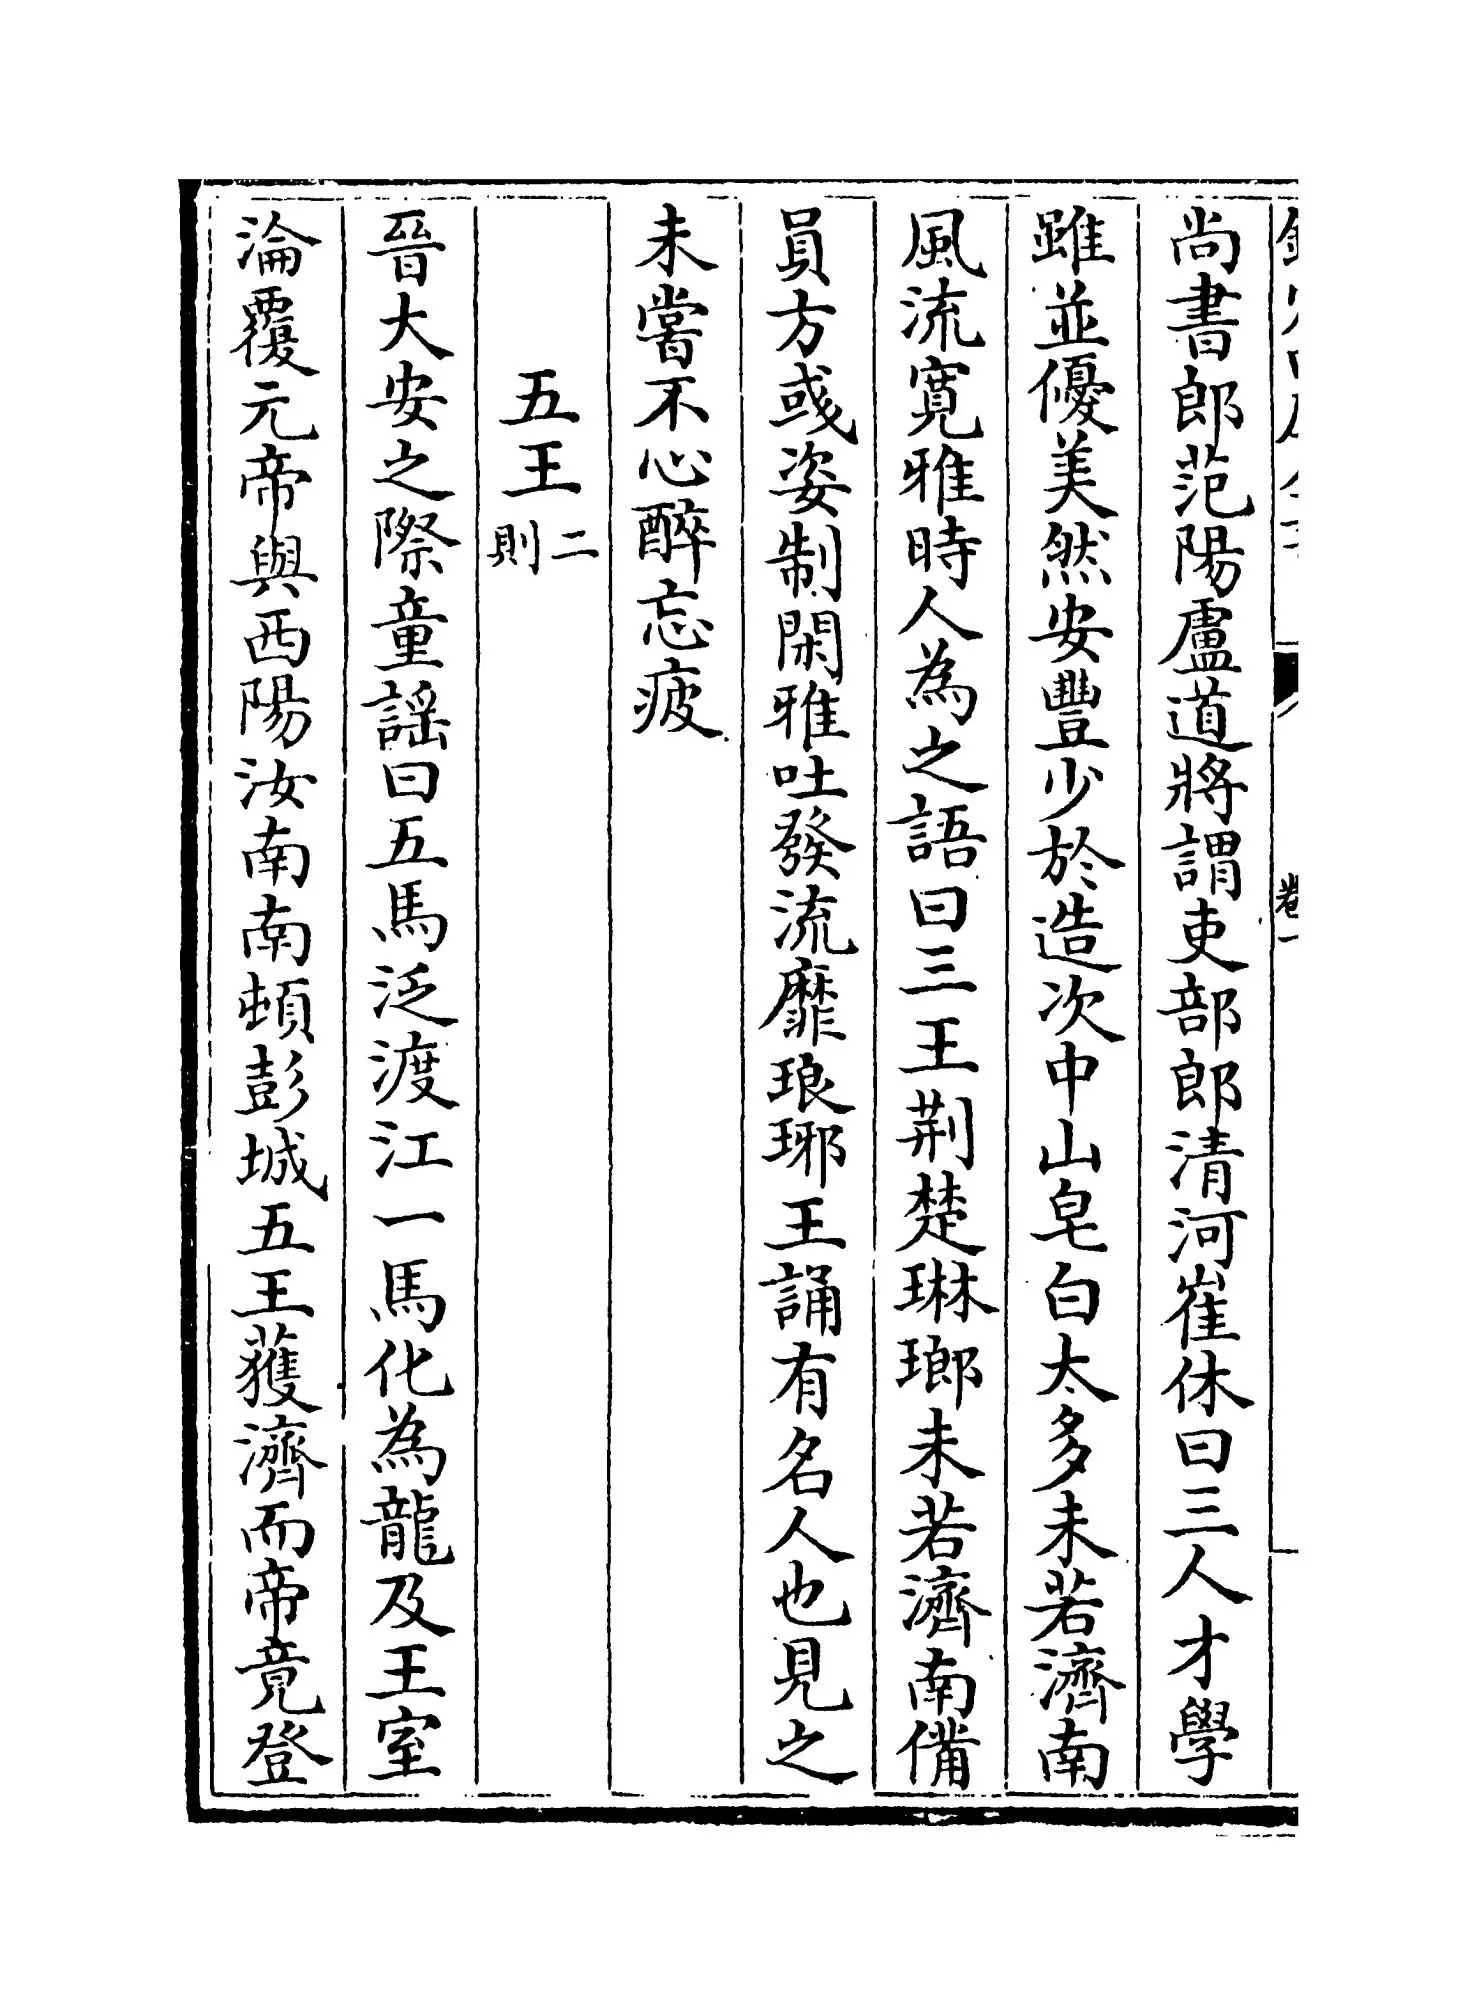 尚書郎范陽盧道將謂吏部郎清河崔休曰三人才學
雖並優美然安豐少於造次中山皂白太多未若濟南
風流寛雅時人為之語曰三王荆楚琳瑯未若濟南備
員方彧姿制閑雅吐發流靡琅琊王誦有名人也見之
未嘗不心醉忘疲
五王二則
晉大安之際童謡曰五馬泛渡江一馬化為龍及王室
淪覆元帝與西陽汝南南頓彭城五王獲濟而帝竟登
卷一